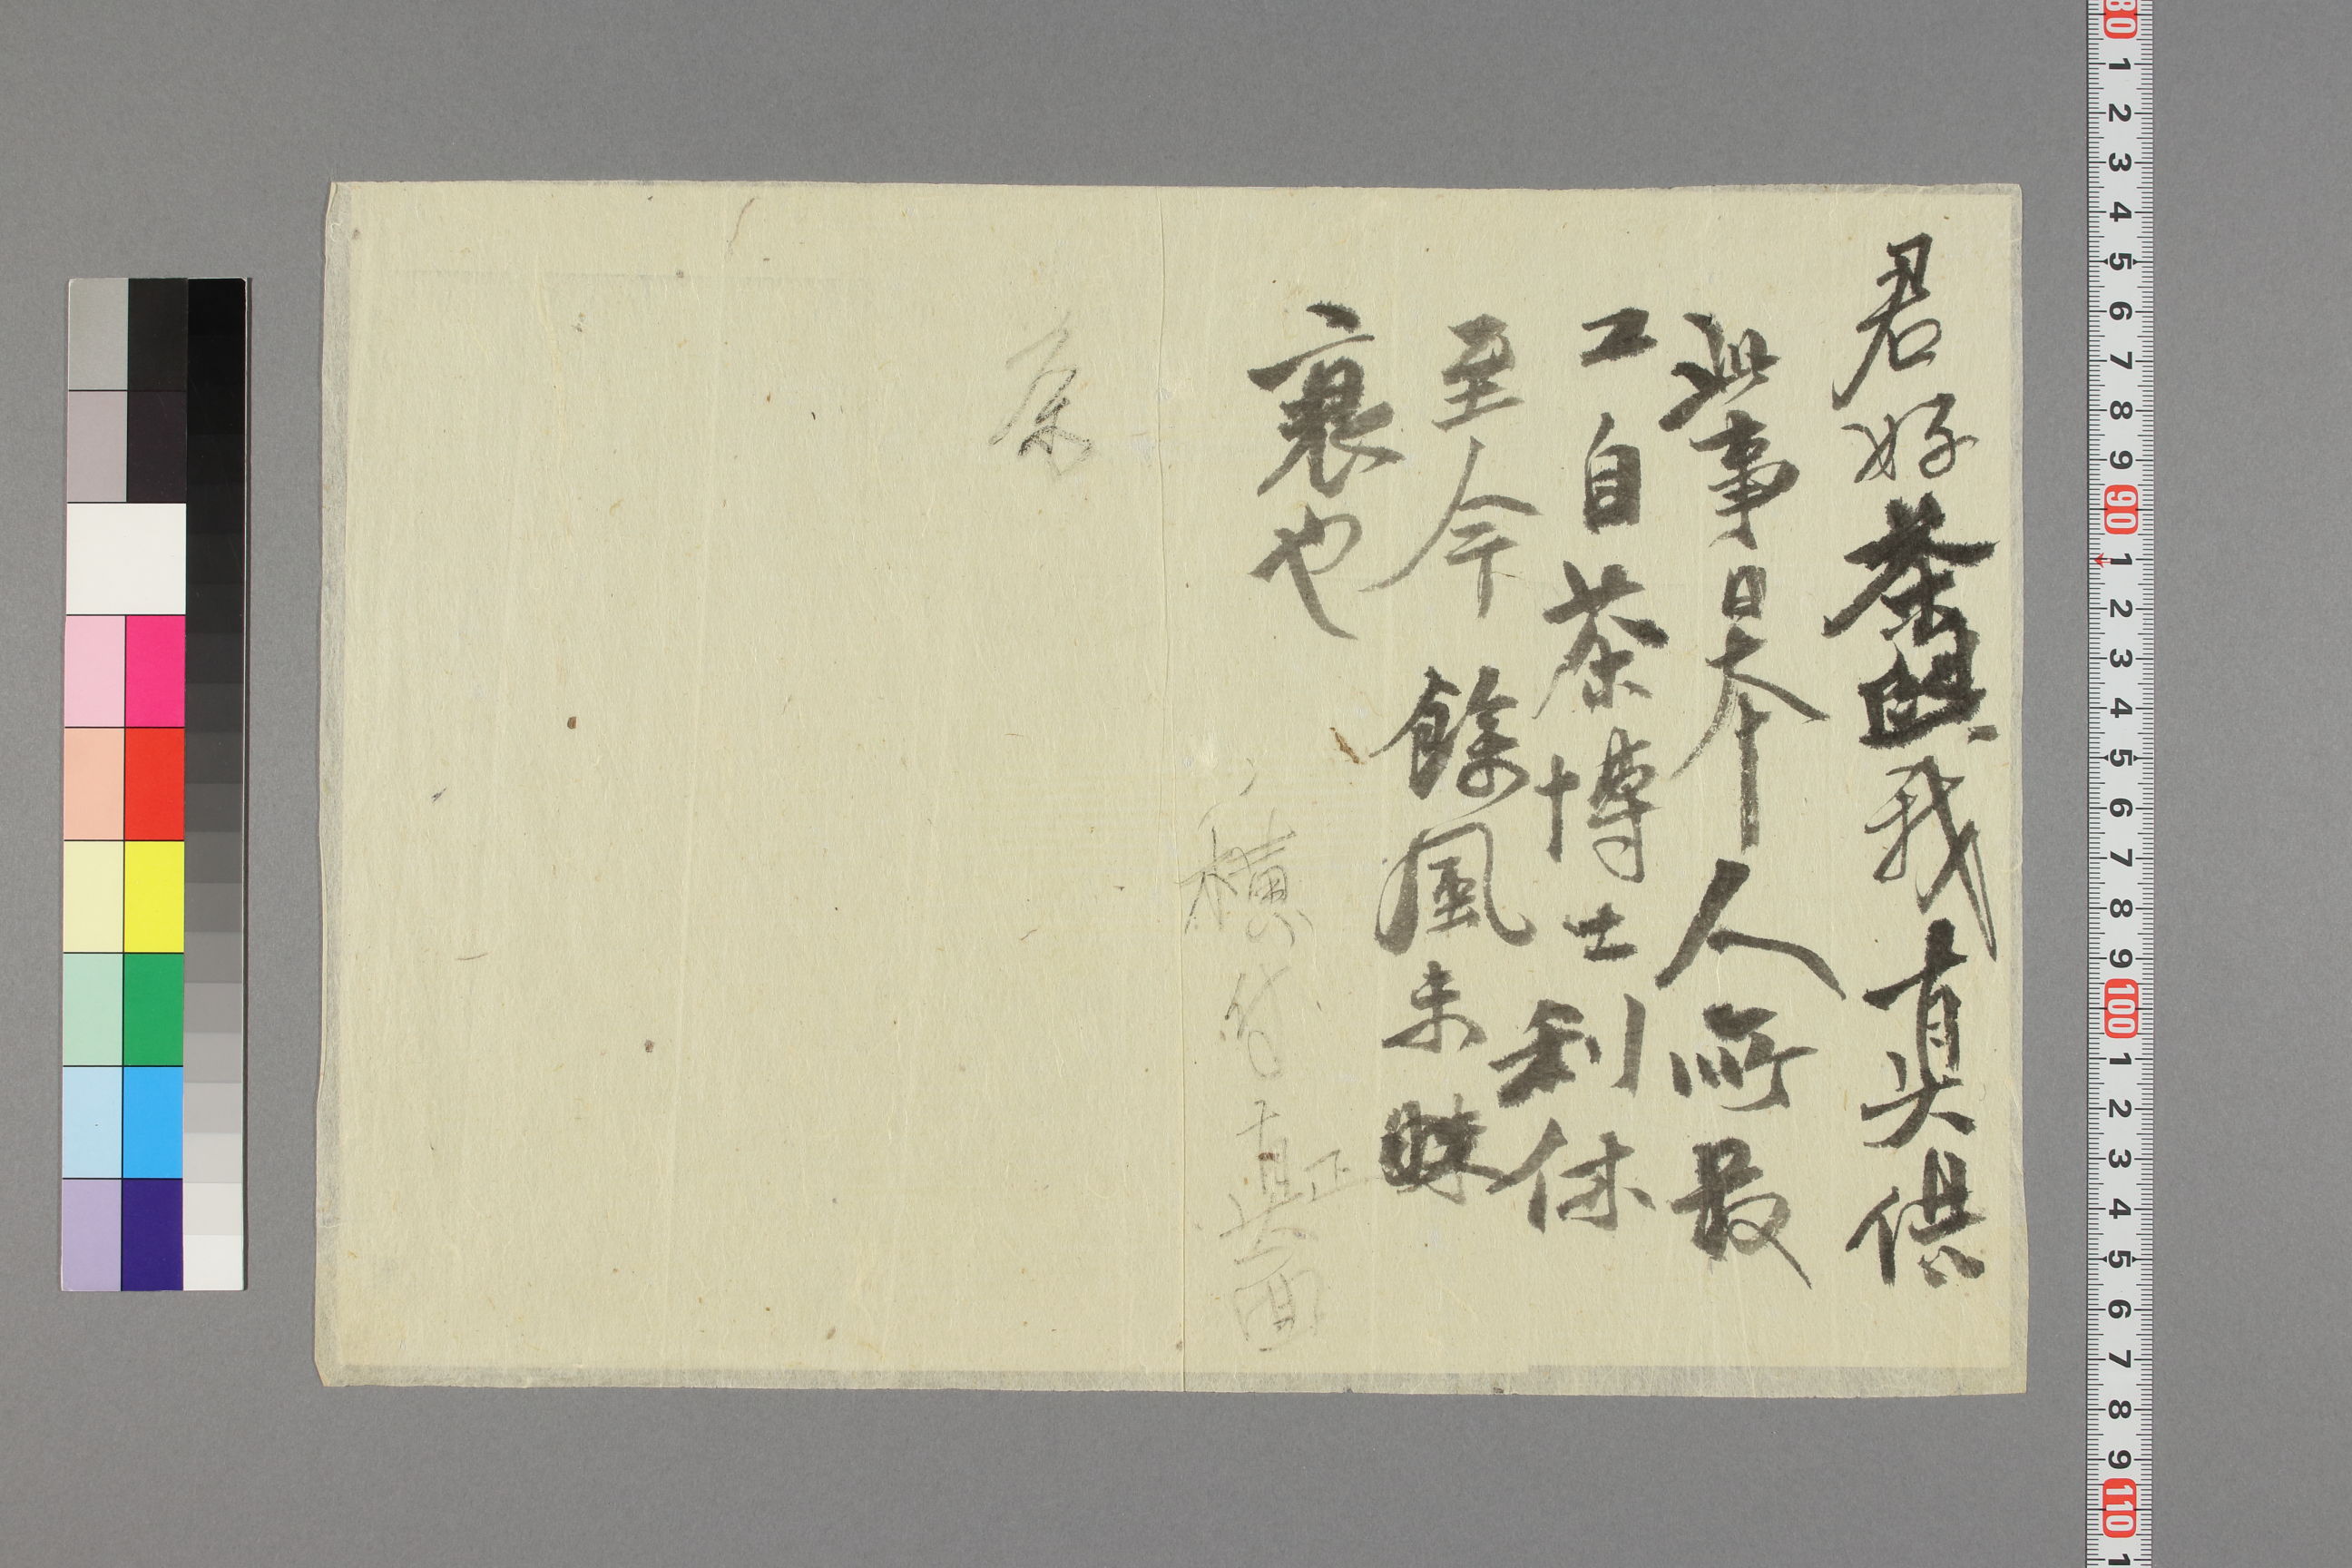 君好茶與我真供
此事日本人所最
工自茶博士利休
至今餘風未
衰也
横
真
正
面
80 1 2 3 4 5 6 7 8 9 90 1 2 3 4 5 6 7 8 9 100 1 2 3 4 5 6 7 8 9 110 1